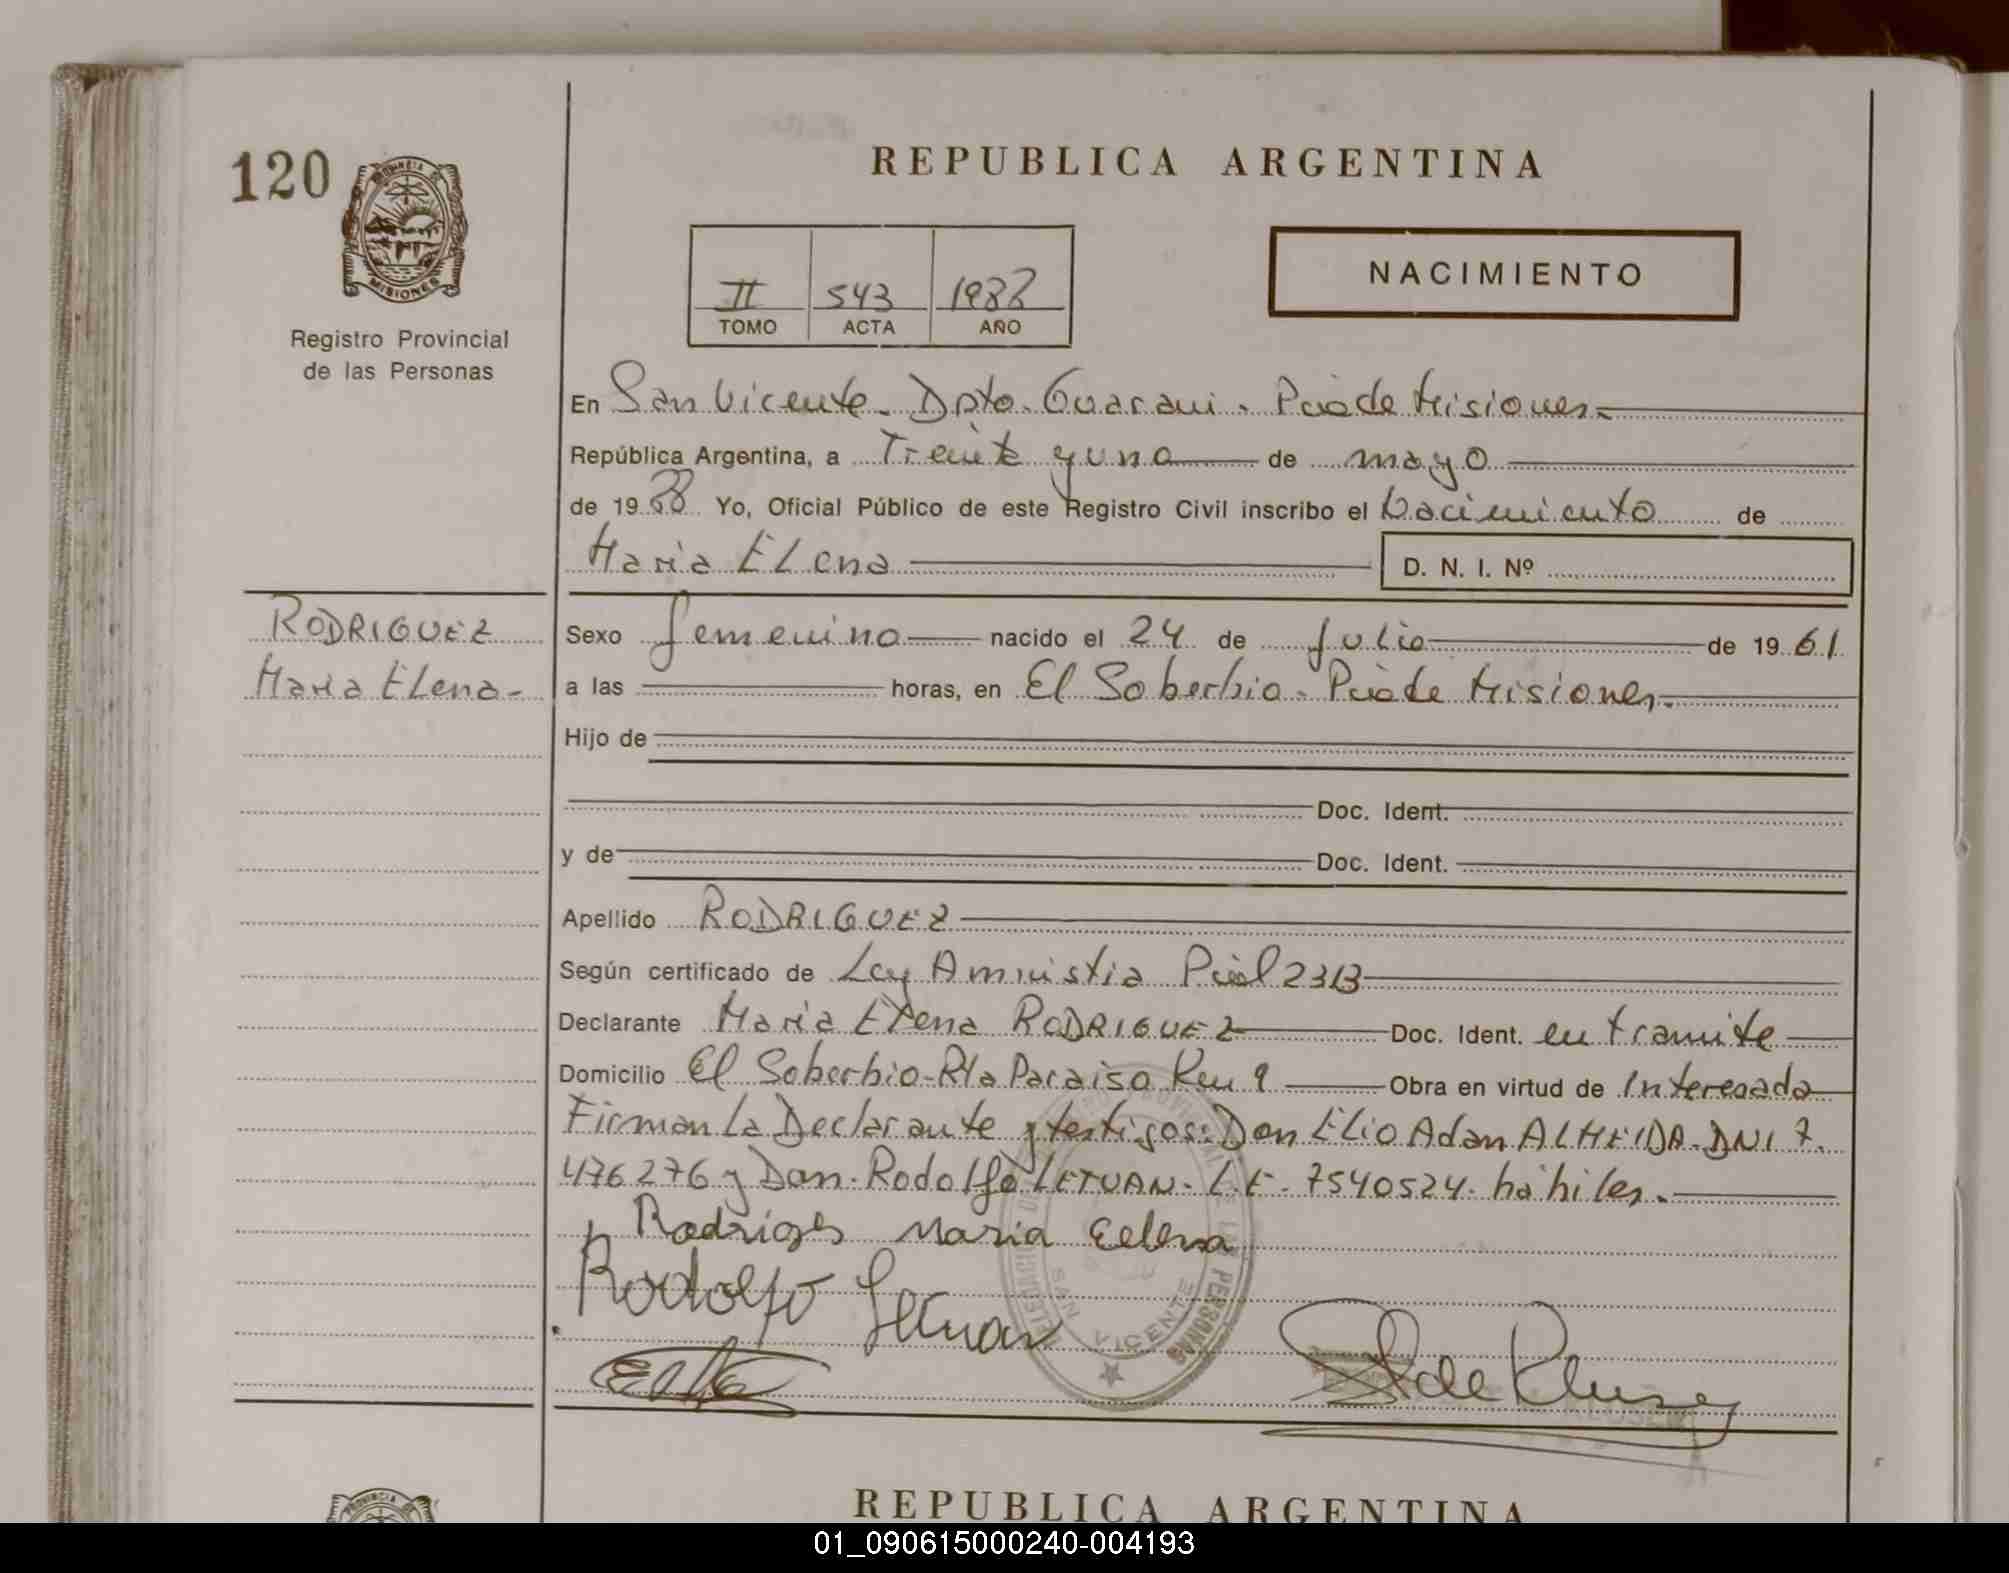 120
REPUBLICA ARGENTINA
PROVINCIA DE
MISIONES
Registro Provincial
de las Personas
II 543 1988
TOMO ACTA AÑO
NACIMIENTO
En San Vicente. Dpto. Guarani. Pcia de Misiones.
República Argentina, a Treinta y uno de mayo
de 1988 Yo, Oficial Público de este Registro Civil inscribo el Nacimiento de
Maria Elena D. N. I. Nº
RODRIGUEZ
Maria Elena.
Sexo femenino nacido el 24 de Julio de 1961
a las horas, en El Soberbio. Pcia de Misiones.
Hijo de
Doc. Ident.
y de Doc. Ident.
Apellido RODRIGUEZ
Según certificado de Ley Amnistia Pcial 2313
Declarante Maria Elena RODRIGUEZ Doc. Ident. en tramite
Domicilio El Soberbio-Rta Paraiso Km 9 Obra en virtud de Interesada
Firman la Declarante y testigos: Don Elio Adan ALMEIDA. DNI 7.
476276 y Don. Rodolfo LETUAN. L.E. 7540524. hábiles.
Rodriges Maria Eelena
Rodolfo Letuan
SAN VICENTE
REPUBLICA ARGENTINA
01_090615000240-004193